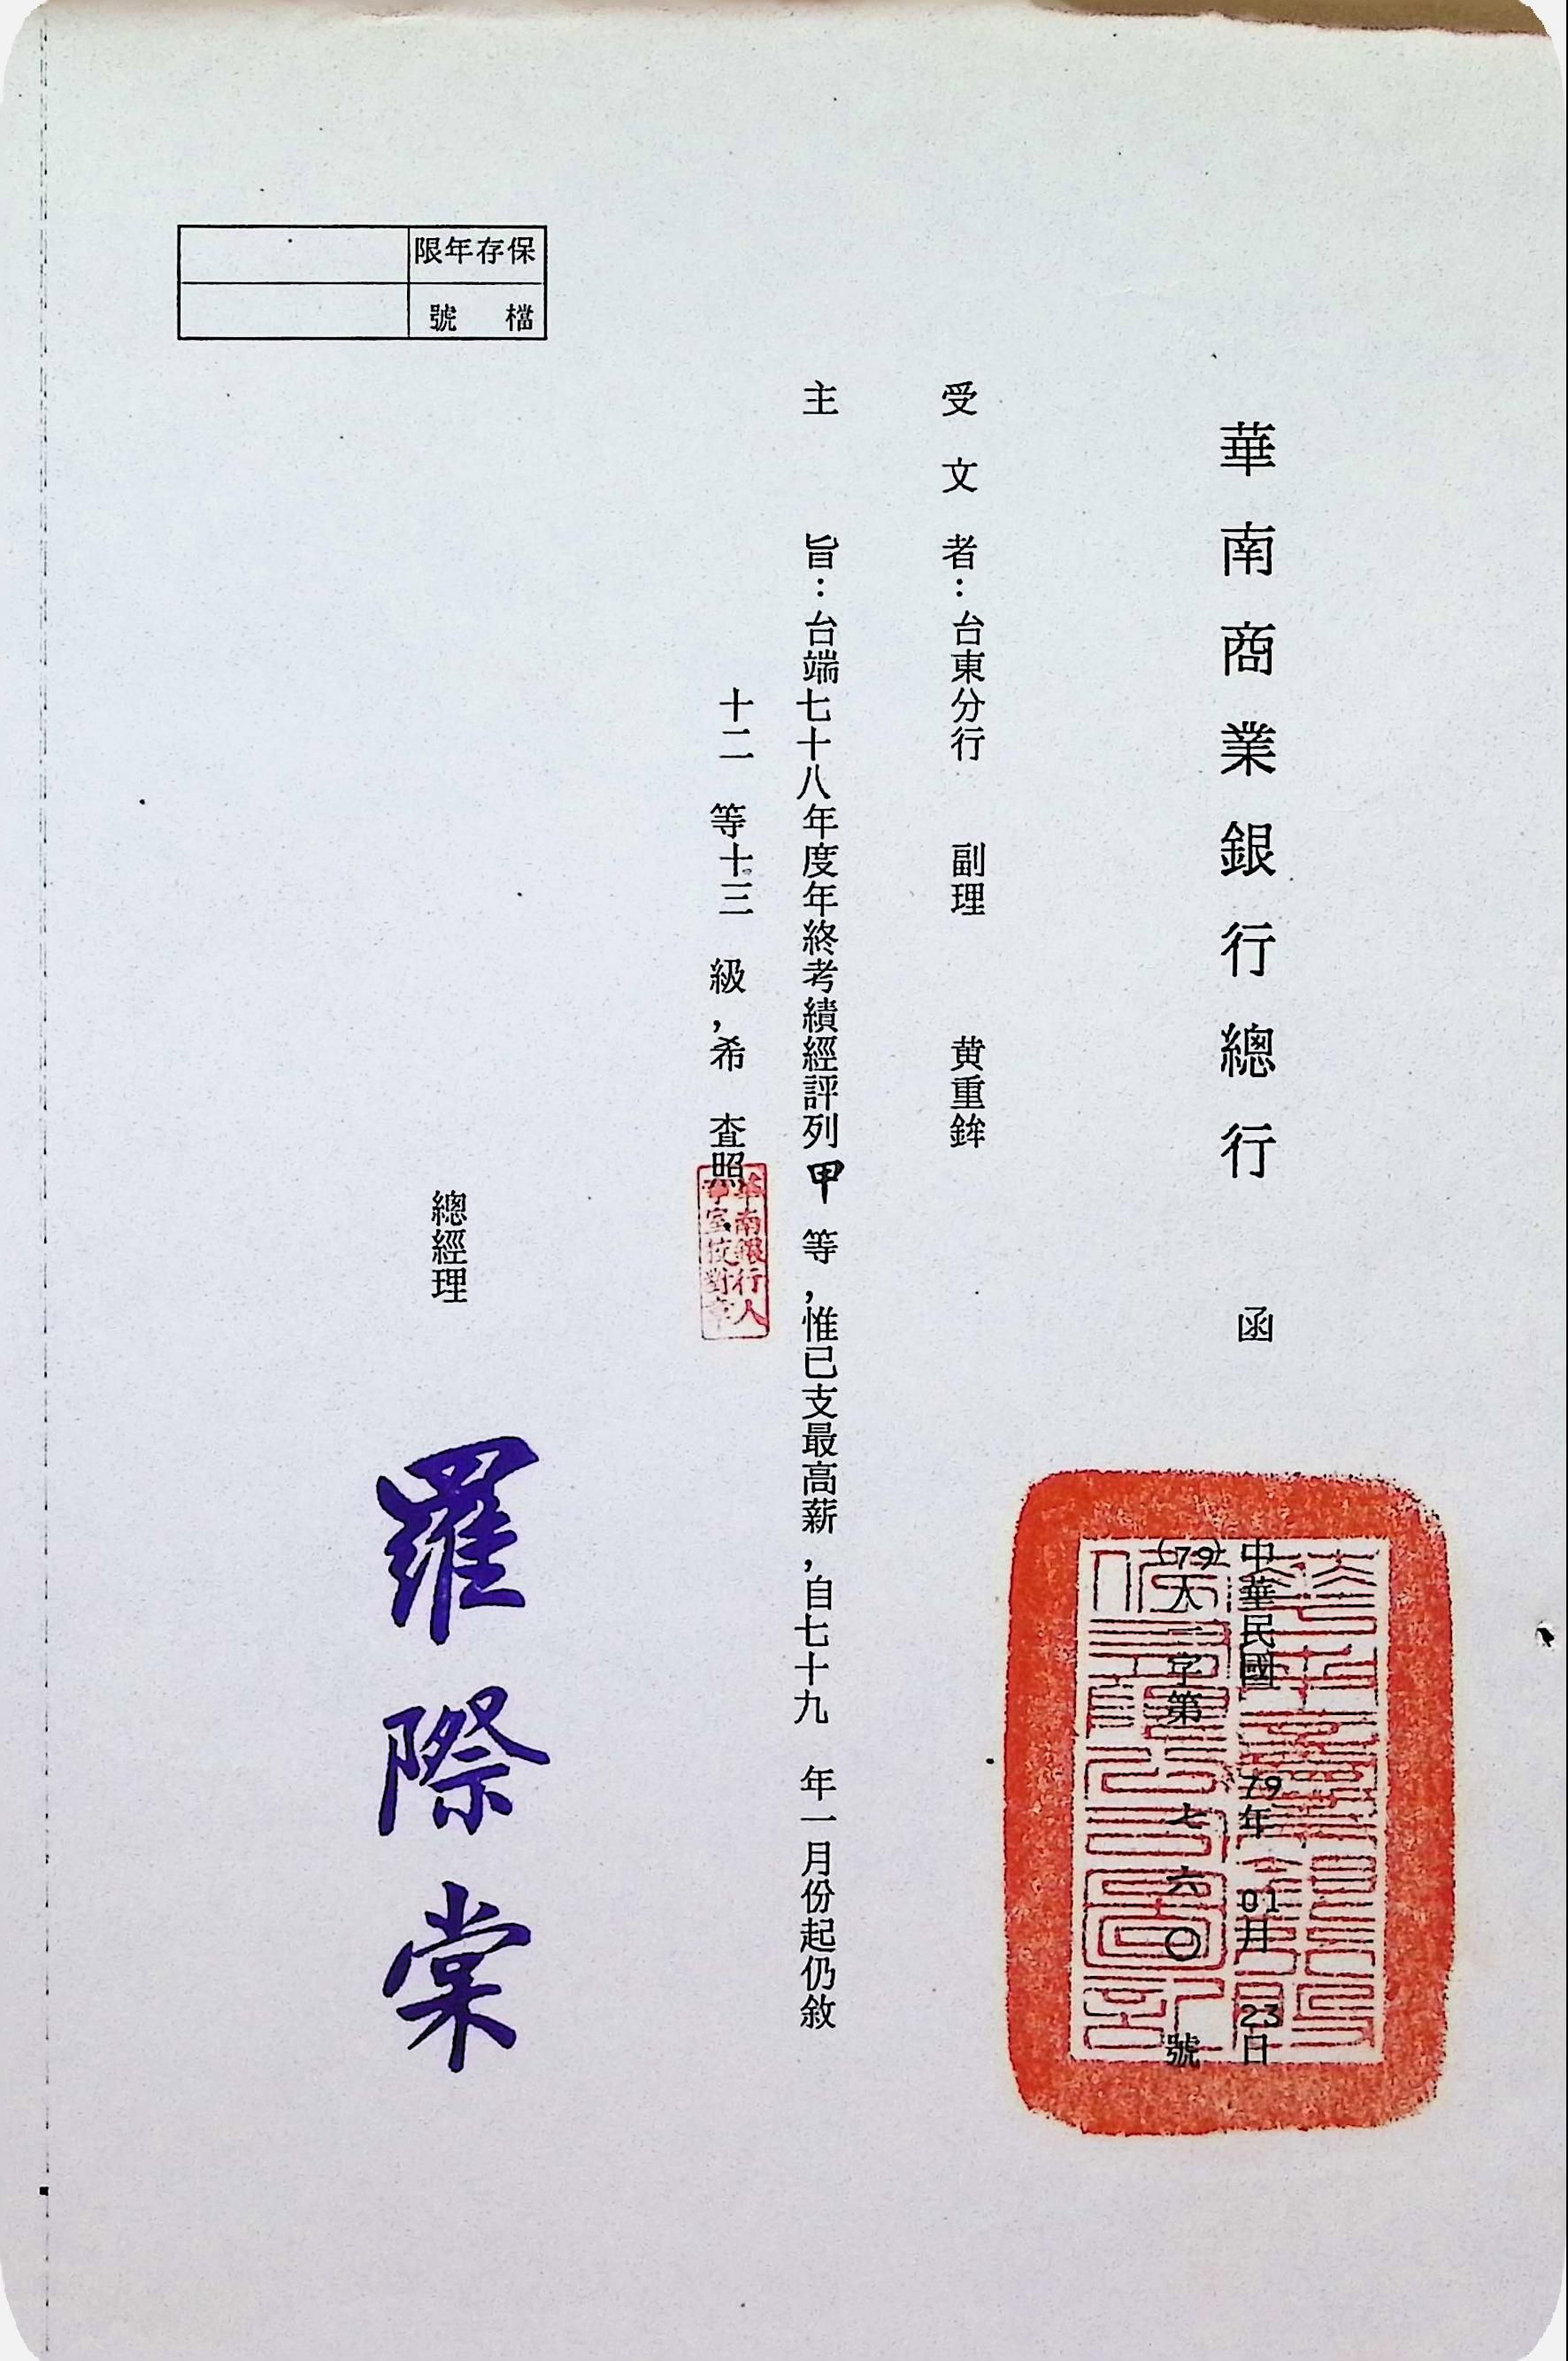 華南商業銀行總行 函
中華民國 79年 01月 23日
(79)人一字第 七六〇 號
受文者：台東分行 副理 黄重鉾
主 旨：台端七十八年度年終考績經評列甲等，惟已支最高薪，自七十九 年一月份起仍敘
十二 等十三 級，希 查照
華南銀行人
事室校對章
總經理 羅際棠
保存年限
檔 號